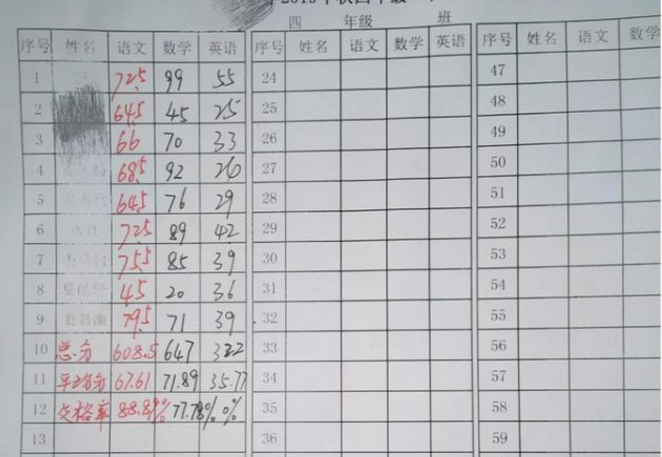 四 年级 班
序号 姓名 语文 数学 英语 序号 姓名 语文 数学 英语 序号 姓名 语文 数学
1 72.5 99 55 24 47
2 64.5 45 25 25 48
3 66 70 33 26 49
4 68.5 92 26 27 50
5 64.5 76 29 28 51
6 72.5 89 42 29 52
7 75.5 85 39 30 53
8 45 20 36 31 54
9 79.5 71 39 32 55
10 总分 608.5 647 322 33 56
11 平均分 67.61 71.89 35.77 34 57
12 及格率 77.78% 0% 35 58
13 36 59